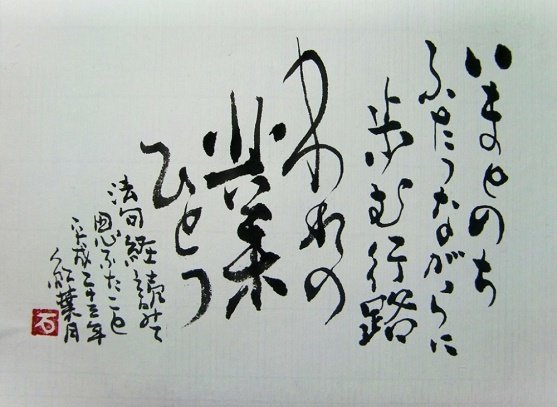 いまとのち
ふたつながらに
歩む行路
われの
共業
ひとつ
法句経読みて
思ふたこと
平成二十三年
葉月
石